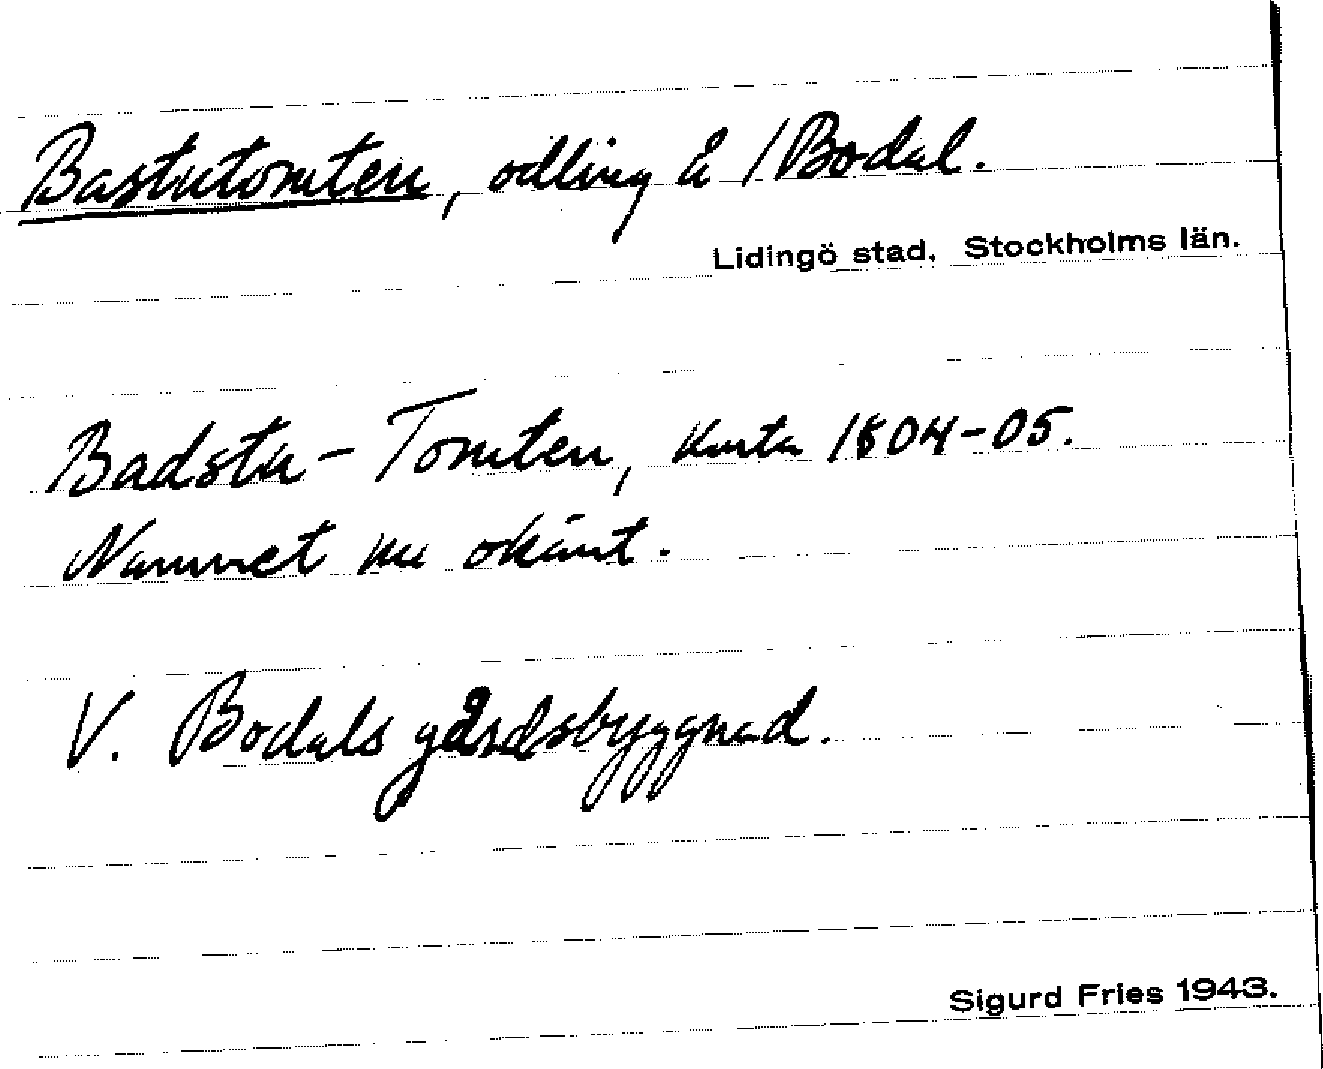 Bastutomten, odling å /Bodal.
Lidingö stad, Stockholms län.
Badstu-Tomten, karta 1804-05.
Namnet nu okänt.
V. Bodals gårdsbyggnad.
Sigurd Fries 1943.